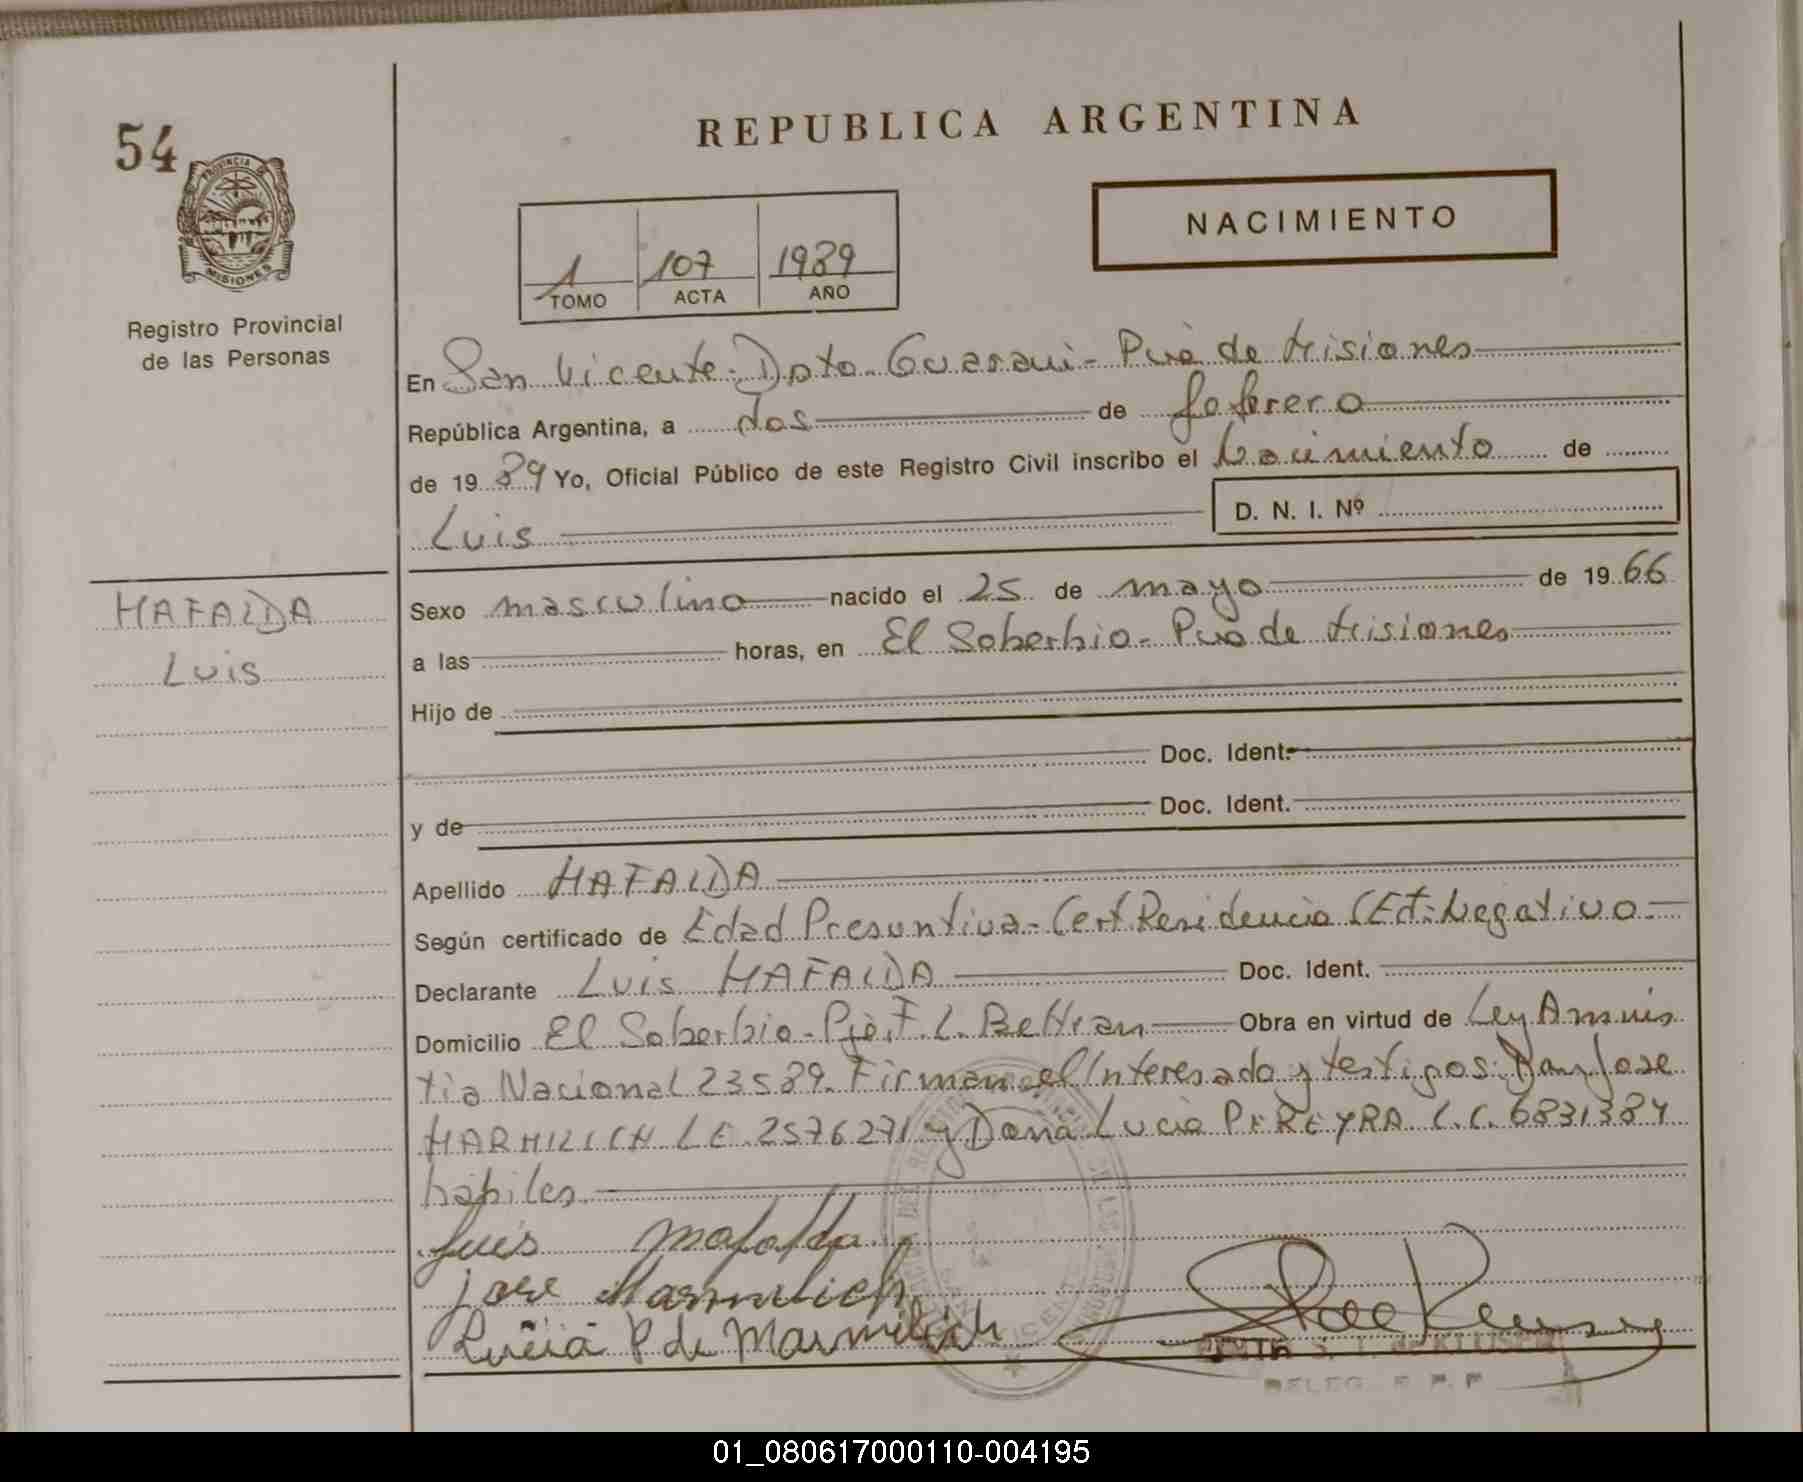 REPUBLICA ARGENTINA
54
PROVINCIA DE
MISIONES
Registro Provincial
de las Personas
NACIMIENTO
1 107 1989
TOMO ACTA AÑO
En San Vicente - Dpto. Guarani - Pcia de Misiones
República Argentina, a dos de febrero
de 19 89 Yo, Oficial Público de este Registro Civil inscribo el Nacimiento de
Luis
D. N. I. Nº
MAFALDA
Luis
Sexo masculino nacido el 25 de mayo de 19 66
a las horas, en El Soberbio - Pcia de Misiones
Hijo de
Doc. Ident.
y de Doc. Ident.
Apellido MAFALDA
Según certificado de Edad Presuntiva - Cert. Residencia Negativo
Declarante Luis MAFALDA Doc. Ident.
Domicilio El Soberbio - Pje. F. L. Beltran Obra en virtud de Ley Amnis
tia Nacional 23589. Firman el Interesado y testigos: Don Jose
MARMILICH L.E. 2576271 y Dona Lucia PEREYRA L.C. 6831384
habiles
Luis Mafalda
jose Marmilich
Lucia P de Marmilich
DELEG. R. P. P.
01_080617000110-004195